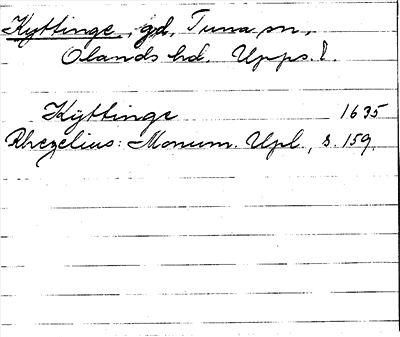 Kyttinge, gd, Tuna sn,
Olands hd. Upps. l.
Kÿttinge 1635
Rhezelius: Monum. Upl., s. 159.